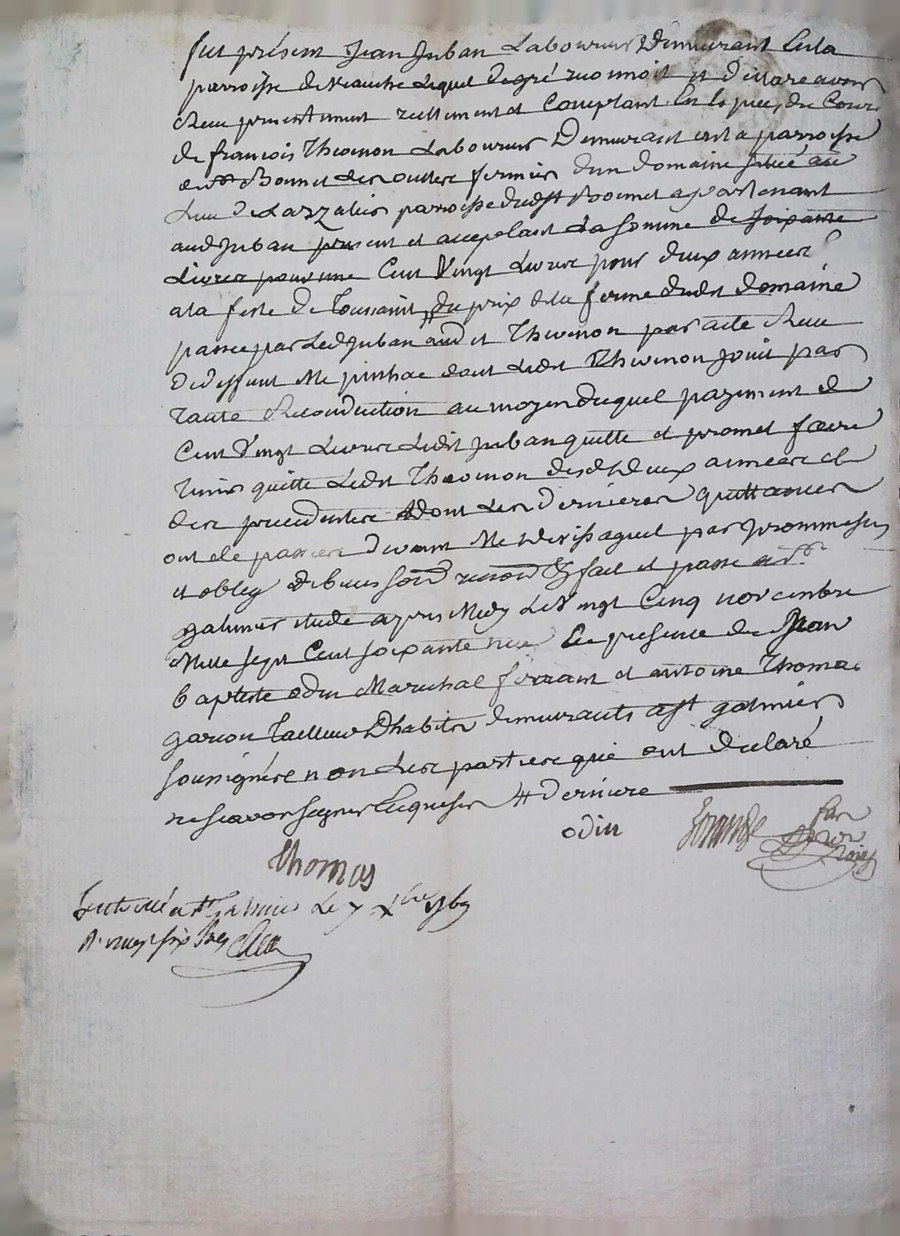 fut présent Jean Juban Laboureur Demeurant En la
parroisse de Lequel de gré reconnoit et declare avoir
Receu presentement reellement et Comptant En Especes du Cours
de françois Thevenon Laboureur Demeurant en la parroisse
de st Bonnet Les oulles fermier d'un domaine situé au
Lieu de Lazzalier parroisse dudt st Bonnet apartenant
aud Juban present et acceptant La somme de soixante
Livres pour une Cent Vingt Livres pour deux années
a la feste de Toussaint du prix de la ferme dudt domaine
passée par Led Juban aud et Thevenon par acte Receu
De deffunt Me pinhac dont Ledt Thevenon jouit par
Taute Reconduction au moyen duquel payement de
Cent Vingt Livres Ledit Juban quitte et promet faire
tenir quitte Ledt Thevenon desdt deux années et
des precedentes dont Les Dernieres quittances
ont ete passées devant Me par promesses
et oblig de biens soud renond &c fait et passé a st
galmier etude apres Midy Le Vingt Cinq novembre
Mille sept Cent soixante neuf En presence de Jean
baptiste odin Marechal ferrant et antoine Thomas
garcon Tailleur D'habits demeurants a st galmier
soussignés non Les parties qui ont declaré
ne sçavoir signer Enquises # derniere
odin
Thomas
Controllé a st Galmier Le 7 Xbre 1769
R. neuf six